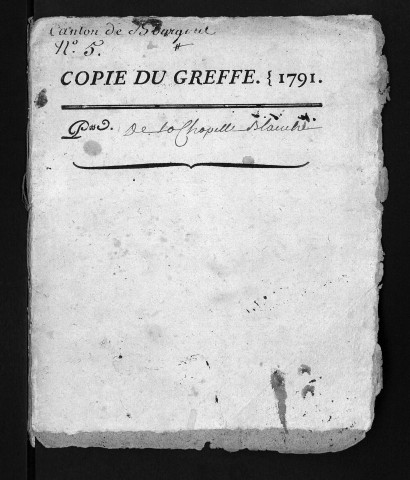 Canton de Bourgueil
N.º 5.
COPIE DU GREFFE. { 1791.
De la Chapelle Blanche